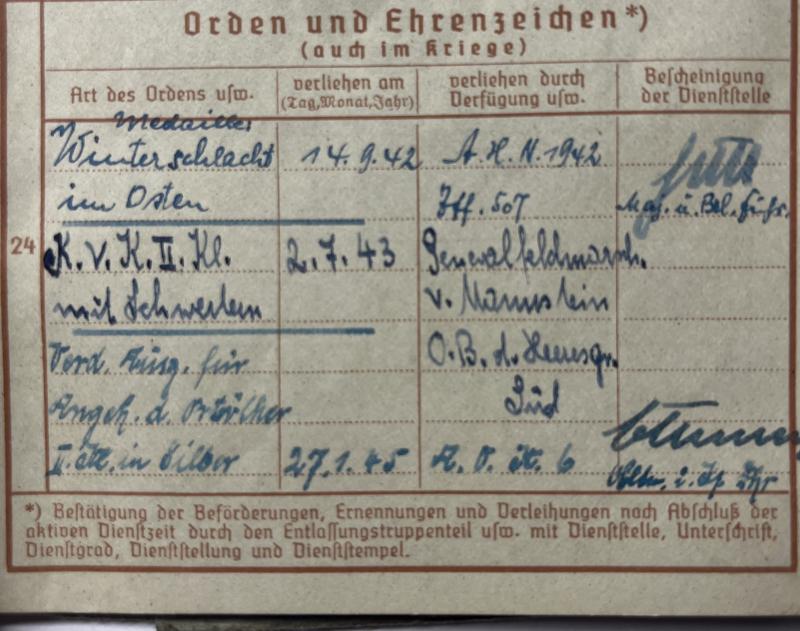 Orden und Ehrenzeichen*)
(auch im Kriege)
Art des Ordens usw. verliehen am (Tag, Monat, Jahr) verliehen durch Verfügung usw. Bescheinigung der Dienststelle
Medaille
Winterschlacht 14.9.42 A.H.N. 1942
im Osten Ziff. 507 Maj. u. Btl. Führ.
24
K.V.K. II. Kl. 2.7.43 Generalfeldmarsch.
mit Schwertern v. Mannstein
Verd. Ausz. für O.B. d. Heeresgr.
Angeh. d. Ostvölker Süd
II. Kl. in Silber 27.1.45
*) Bestätigung der Beförderungen, Ernennungen und Verleihungen nach Abschluß der
aktiven Dienstzeit durch den Entlassungstruppenteil usw. mit Dienststelle, Unterschrift,
Dienstgrad, Dienststellung und Dienststempel.